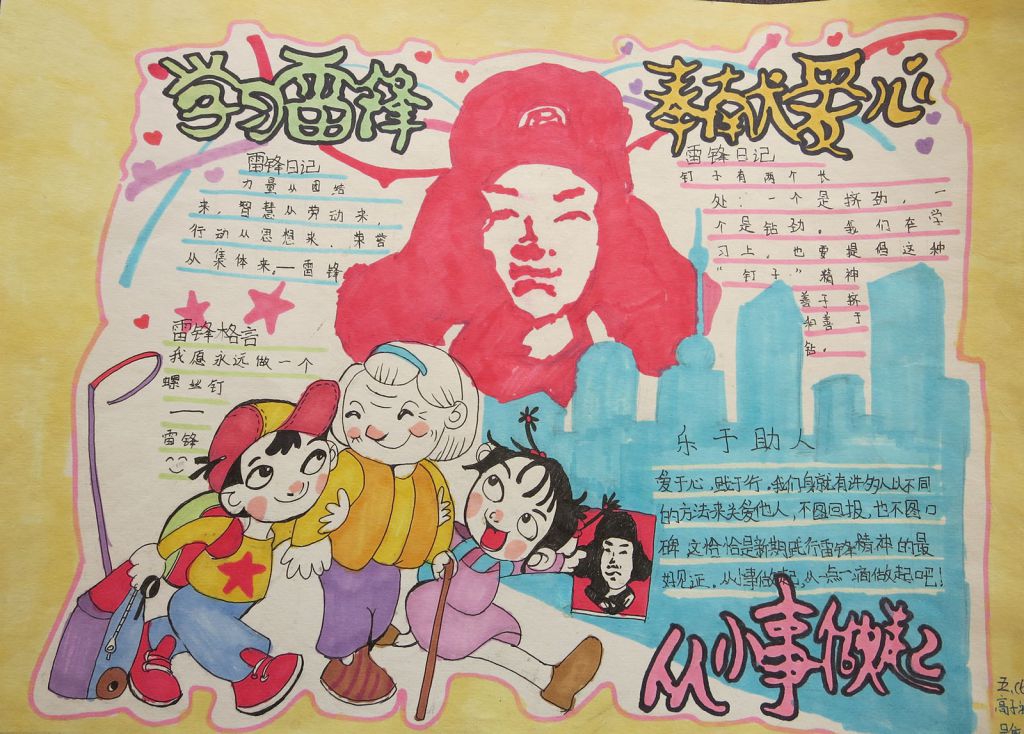 学习雷锋
奉献爱心
雷锋日记
力量从团结
来，智慧从劳动来，
行动从思想来，荣誉
从集体来。—雷锋
雷锋日记
钉子有两个长
处：一个是挤劲，一
个是钻劲。我们在学
习上，也要提倡这种
“钉子”精神
善于挤
和善于
钻。
雷锋格言
我愿永远做一个
螺丝钉
—
雷锋
乐于助人
爱于心，践于行，我们身就有许多人以不同
的方法来关爱他人，不图回报，也不图口
碑 这恰恰是新期践行雷锋精神的最
好见证，从小事做起，从一点一滴做起吧！
从小事做起
五.(6
高子